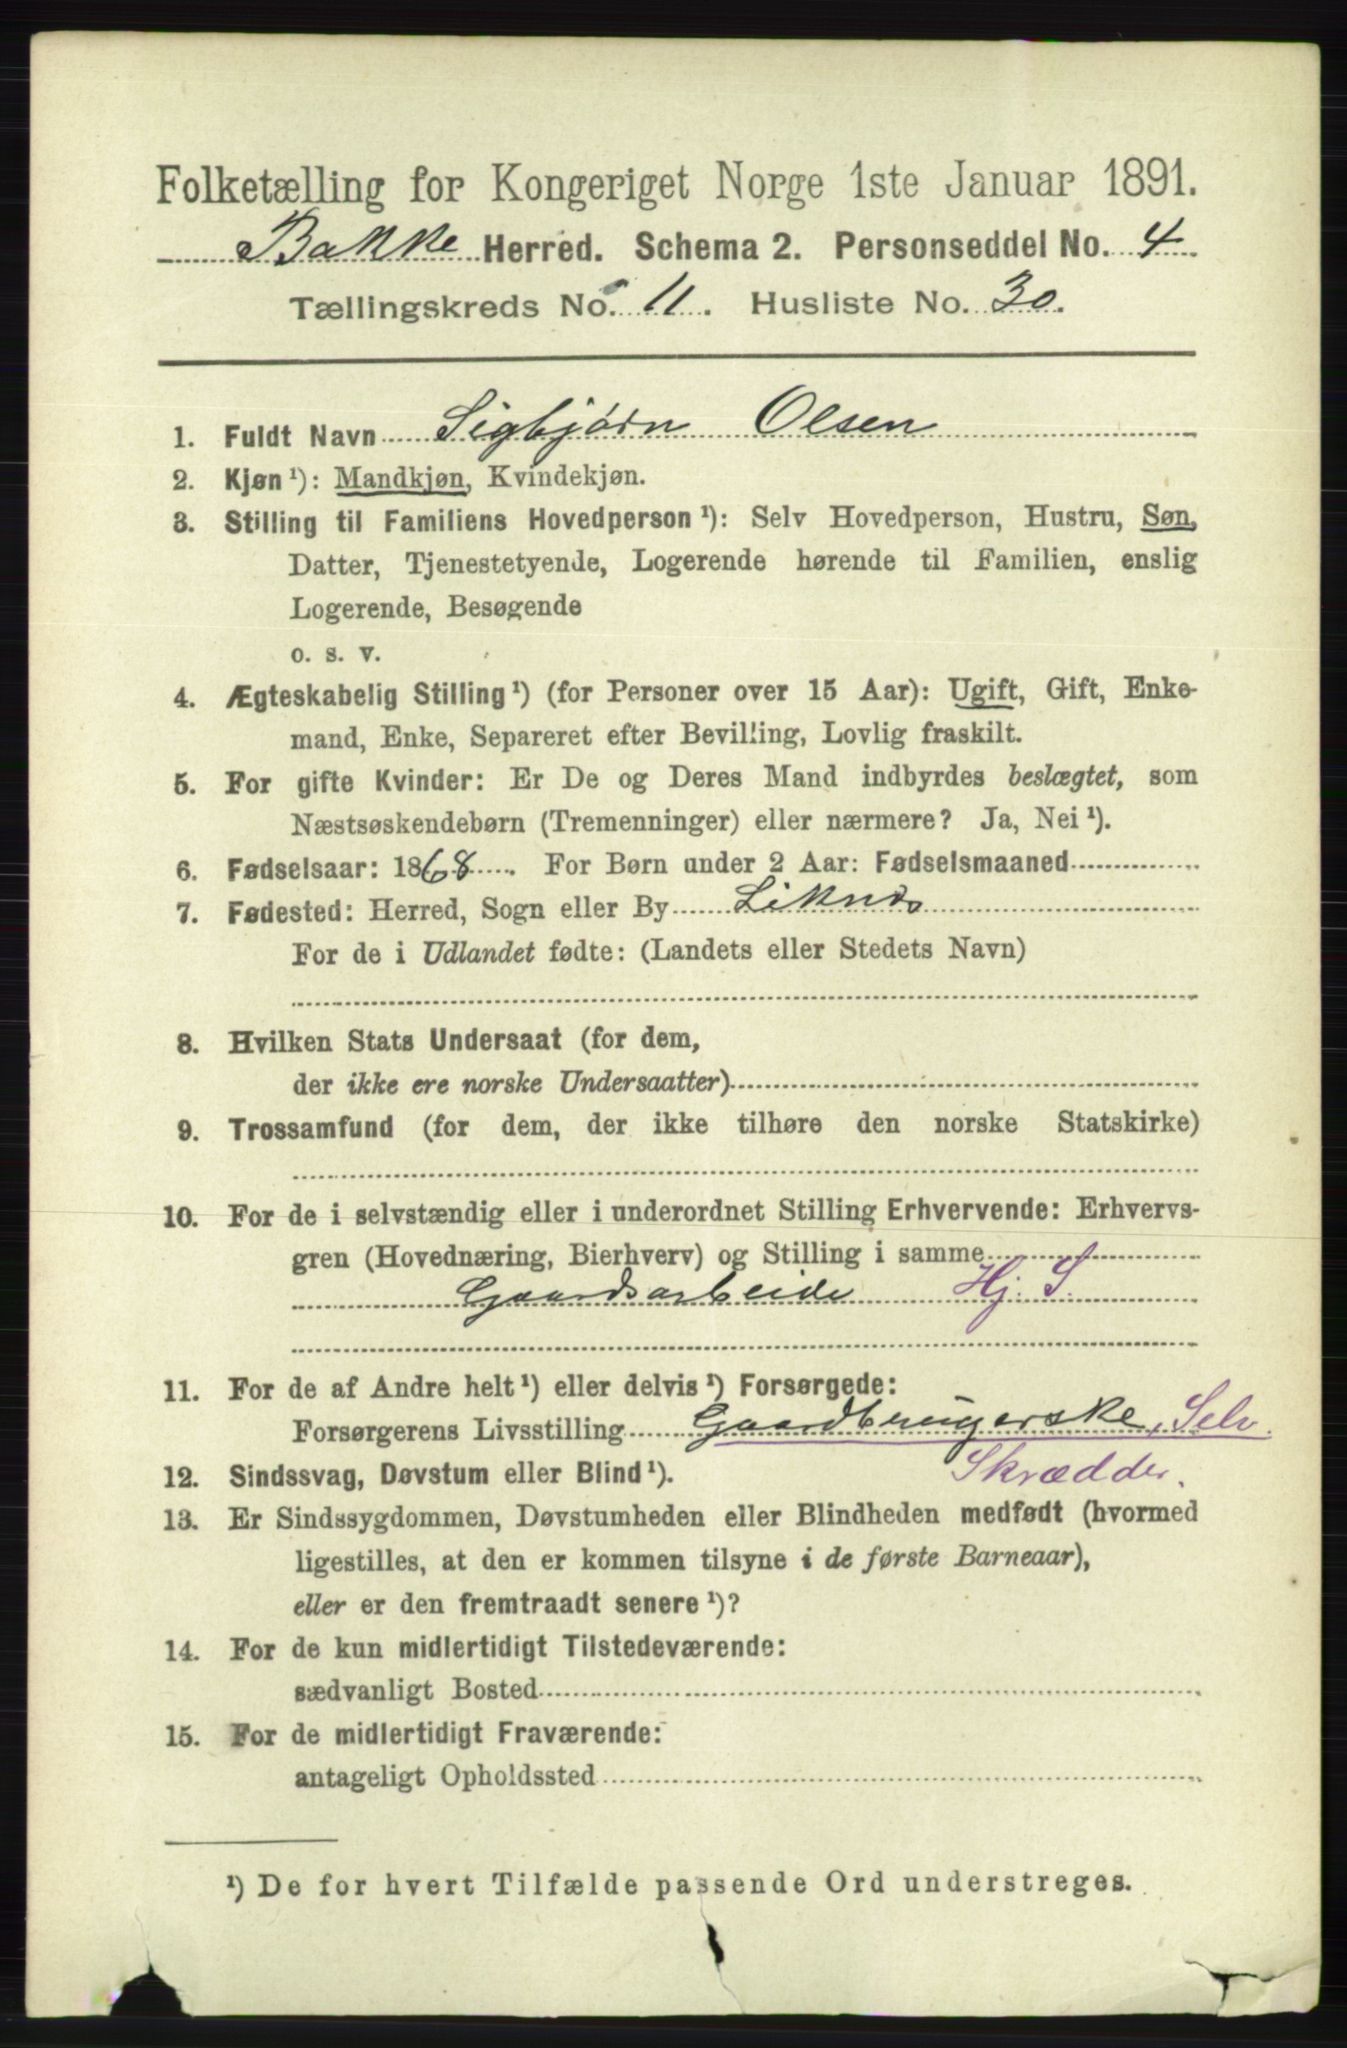 Folketælling for Kongeriget Norge 1ste Januar 1891.
Bakke Herred. Schema 2. Personseddel No. 4
Tællingskreds No. 11. Husliste No. 30.
1. Fuldt Navn Sigbjørn Olsen
2. Kjøn ¹): Mandkjøn, Kvindekjøn.
3. Stilling til Familiens Hovedperson ¹): Selv Hovedperson, Hustru, Søn,
Datter, Tjenestetyende, Logerende hørende til Familien, enslig
Logerende, Besøgende
o. s. v.
4. Ægteskabelig Stilling ¹) (for Personer over 15 Aar): Ugift, Gift, Enke-
mand, Enke, Separeret efter Bevilling, Lovlig fraskilt.
5. For gifte Kvinder: Er De og Deres Mand indbyrdes beslægtet, som
Næstsøskendebørn (Tremenninger) eller nærmere? Ja, Nei ¹).
6. Fødselsaar: 1868. For Børn under 2 Aar: Fødselsmaaned
7. Fødested: Herred, Sogn eller By Liknæs
For de i Udlandet fødte: (Landets eller Stedets Navn)
8. Hvilken Stats Undersaat (for dem,
der ikke ere norske Undersaatter)
9. Trossamfund (for dem, der ikke tilhøre den norske Statskirke)
10. For de i selvstændig eller i underordnet Stilling Erhvervende: Erhvervs-
gren (Hovednæring, Bierhverv) og Stilling i samme
Gaardsarbeide Hj. S.
11. For de af Andre helt ¹) eller delvis ¹) Forsørgede:
Forsørgerens Livsstilling Gaardbrugerske, Selv
12. Sindssvag, Døvstum eller Blind ¹). Skrædder.
13. Er Sindssygdommen, Døvstumheden eller Blindheden medfødt (hvormed
ligestilles, at den er kommen tilsyne i de første Barneaar),
eller er den fremtraadt senere ¹)?
14. For de kun midlertidigt Tilstedeværende:
sædvanligt Bosted
15. For de midlertidigt Fraværende:
antageligt Opholdssted
¹) De for hvert Tilfælde passende Ord understreges.